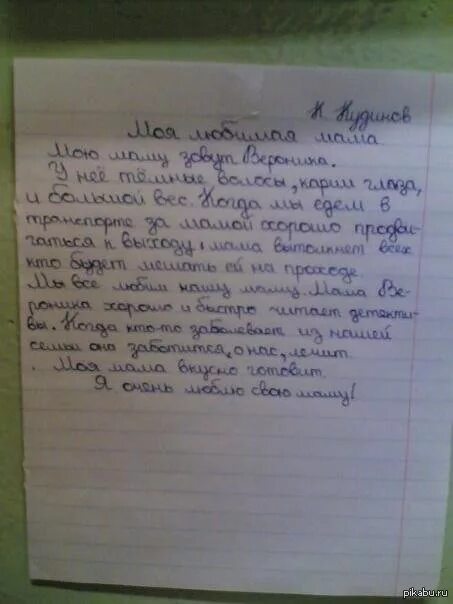 Н. Кудинов
Моя любимая мама
Мою маму зовут Вероника.
У неё тёмные волосы, карии глаза,
и большой вес. Когда мы едем в
транспорте за мамой хорошо продви-
гаться к выходу, мама вытолкнет всех
кто будет мешать ей на проходе.
Мы все любим нашу маму. Мама Ве-
роника хорошо и быстро читает детекти-
вы. Когда кто-то заболевает из нашей
семьи она заботится, о нас, лечит.
. Моя мама вкусно готовит.
Я очень люблю свою маму!
pikabu.ru